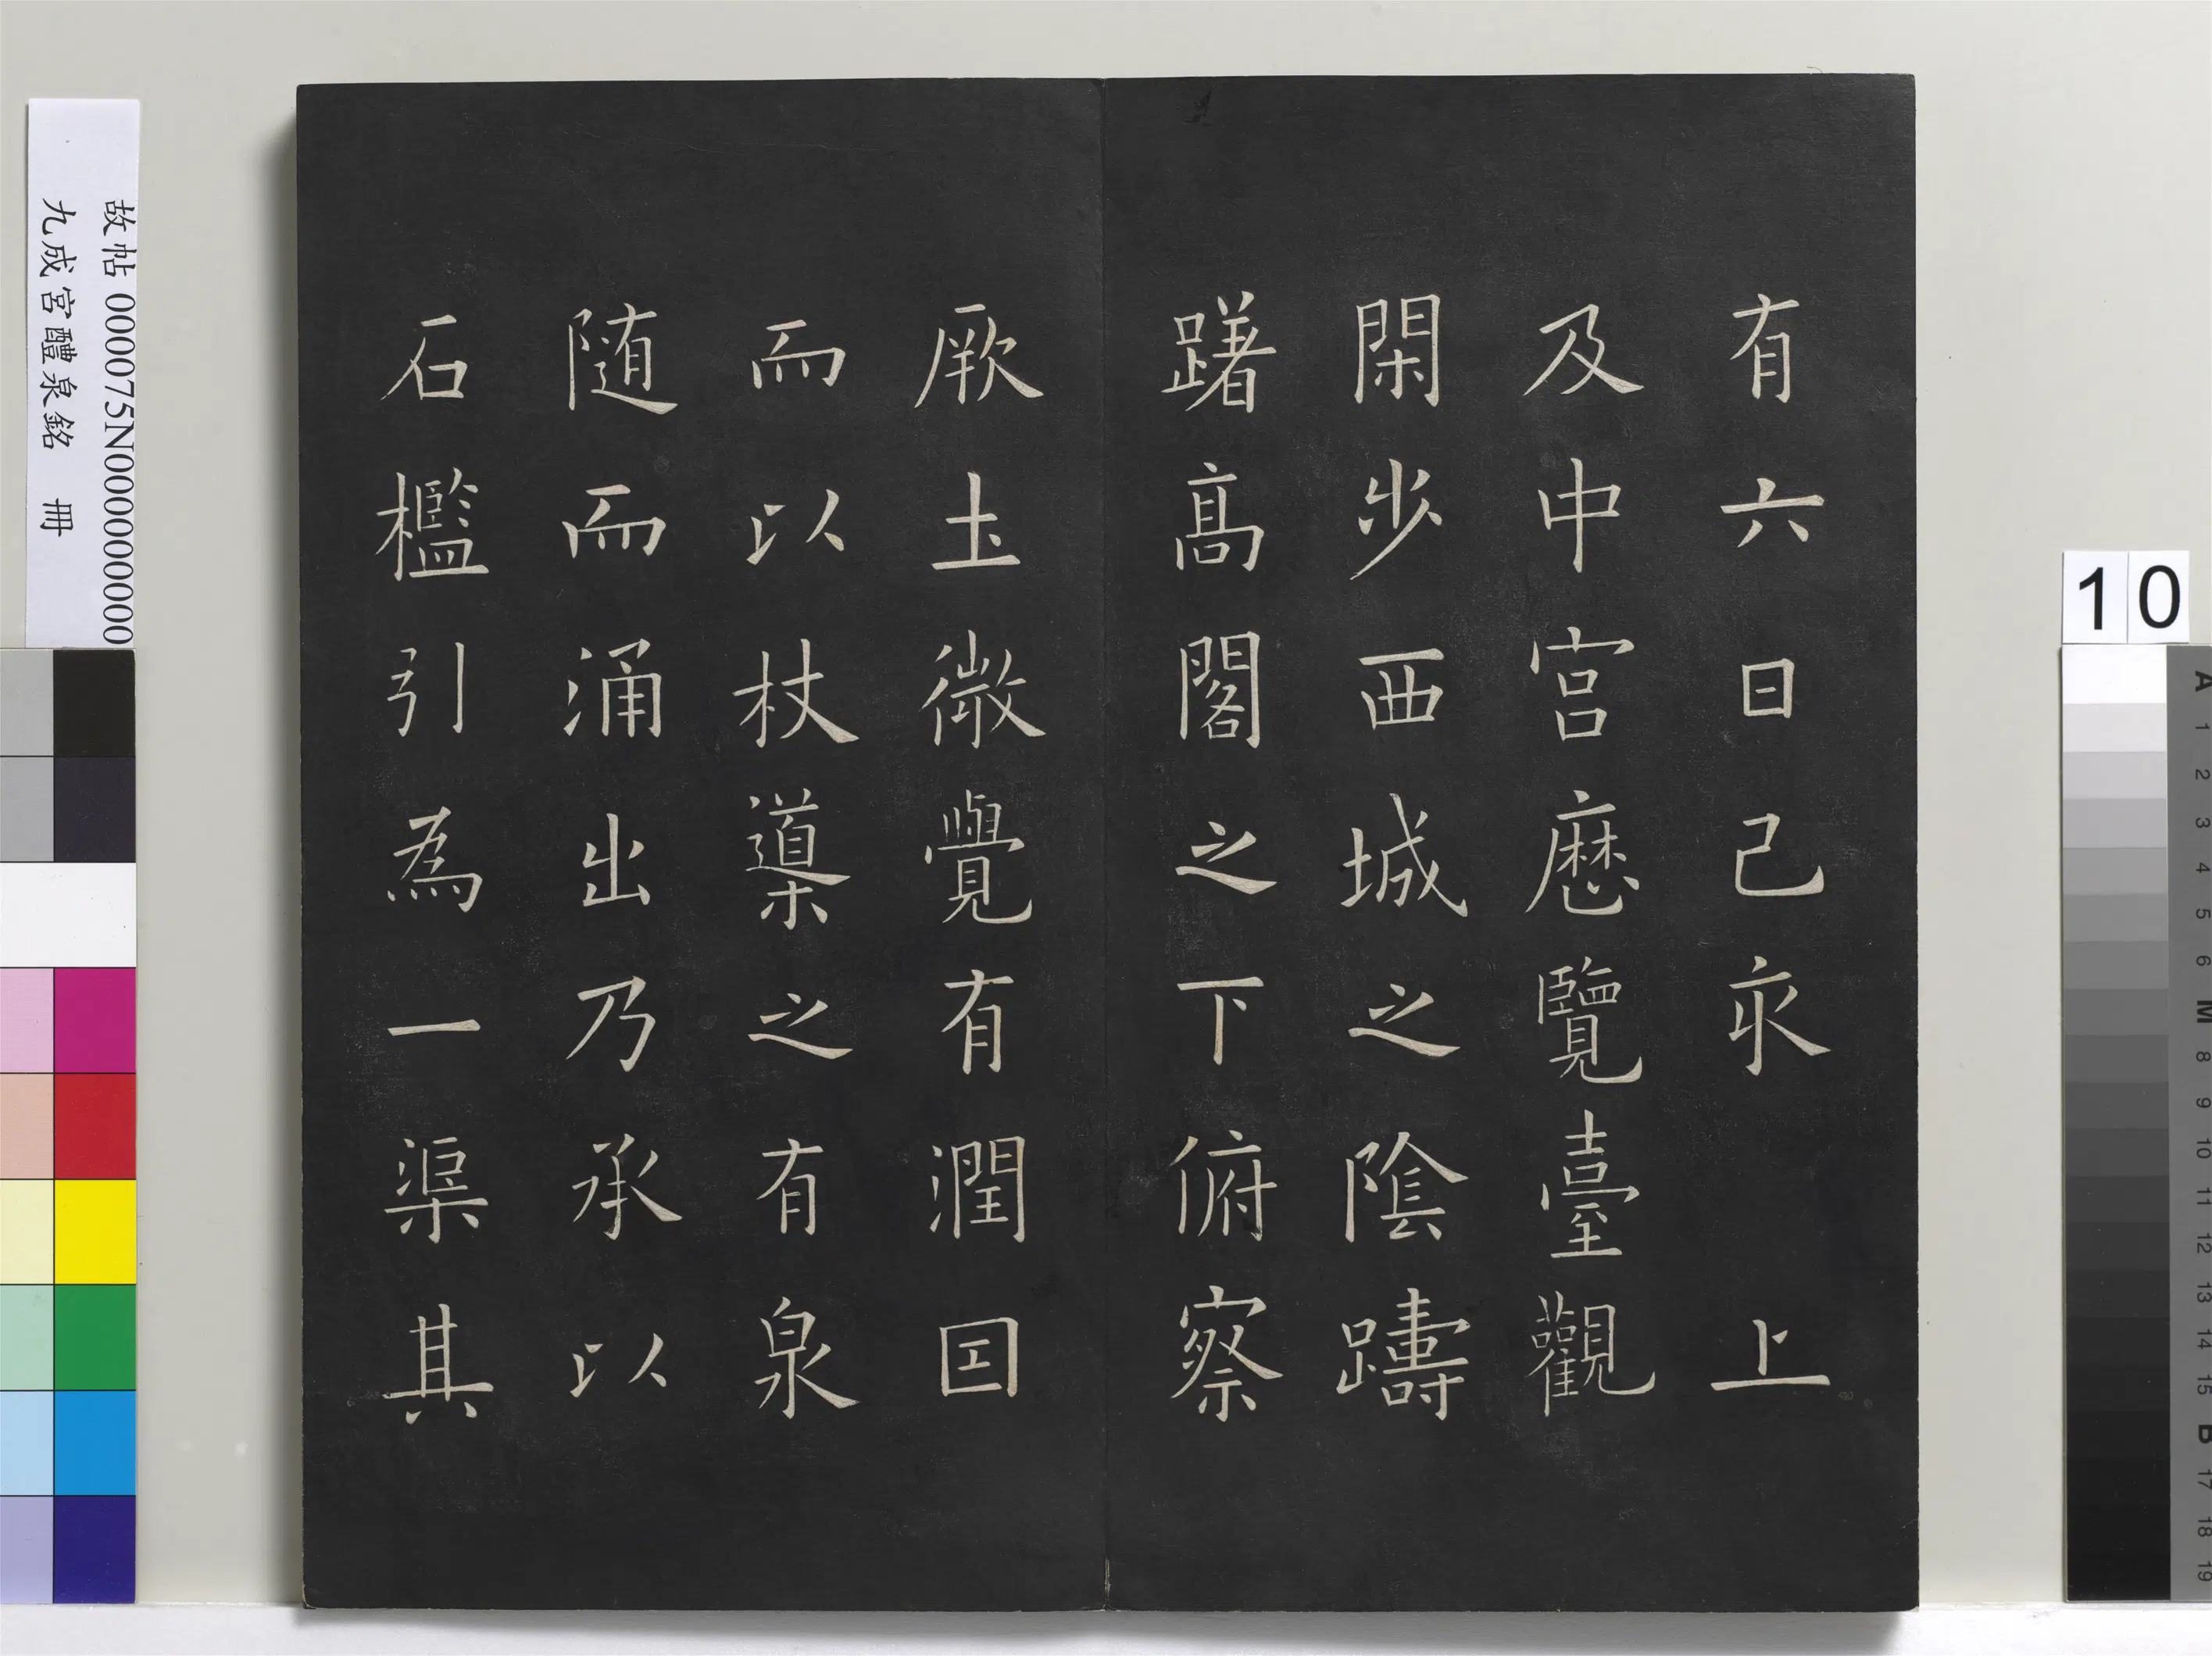 有六日己亥上
及中宫歴覽臺觀
閑步西城之陰躊
躇高閣之下俯察
厥土微覺有潤因
而以杖導之有泉
随而涌出乃承以
石檻引為一渠其
故帖 000075N000000000
九成宮醴泉銘 冊
10
A
1
2
3
4
5
6
M
8
9
10
11
12
13
14
15
B
17
18
19